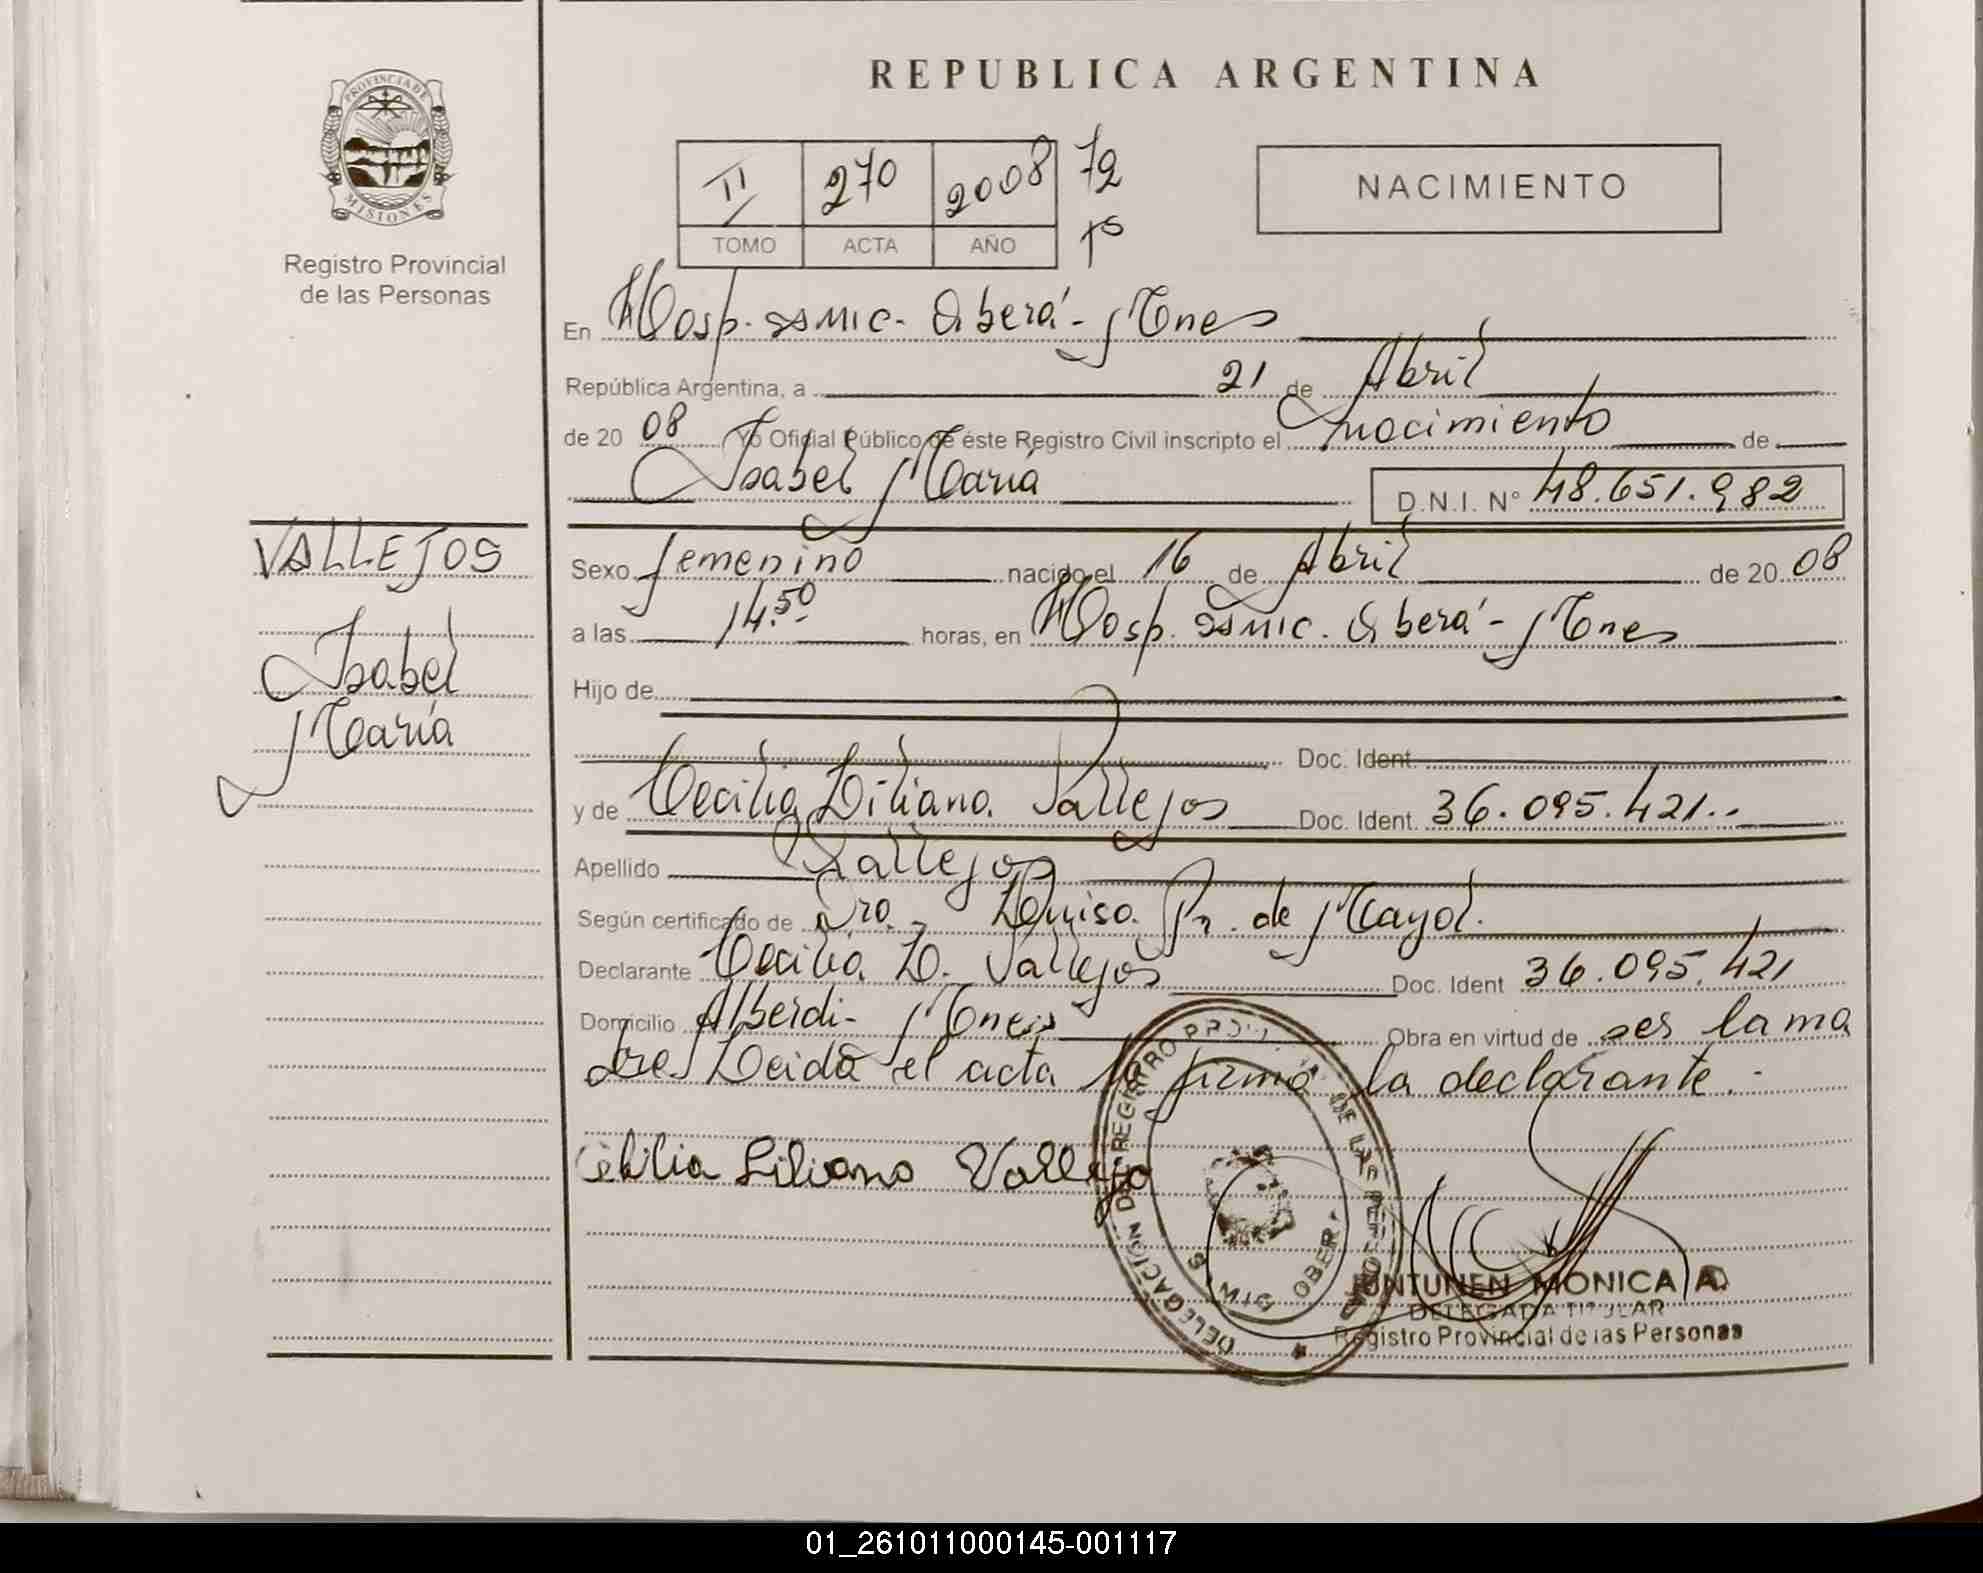 REPUBLICA ARGENTINA
PROVINCIA DE
MISIONES
Registro Provincial
de las Personas
II 270 2008 72
TOMO ACTA AÑO
NACIMIENTO
En Hosp. SAMIC. Oberá - Mnes
República Argentina, a 21 de Abril
de 20 08 Yo Oficial Público de éste Registro Civil inscripto el nacimiento de
Isabel María D.N.I. Nº 48.651.982
VALLEJOS
Isabel
María
Sexo femenino nacido el 16 de Abril de 20 08
a las 14.50 horas, en Hosp. SAMIC. Oberá - Mnes
Hijo de
Doc. Ident.
y de Cecilia Liliana Vallejos Doc. Ident. 36.095.421..
Apellido Vallejos
Según certificado de Dra. Luisa de Mayol.
Declarante Cecilia L. Vallejos Doc. Ident 36.095.421
Domicilio Alberdi - Mnes Obra en virtud de ser la ma
dre Leida el acta la firma la declarante.
Cecilia Liliana Vallejo
DELEGACIÓN DEL REGISTRO PROV. DE LAS PERSONAS
OBERA
JUNTUNEN MONICA A.
DELEGADA TITULAR
Registro Provincial de las Personas
01_261011000145-001117